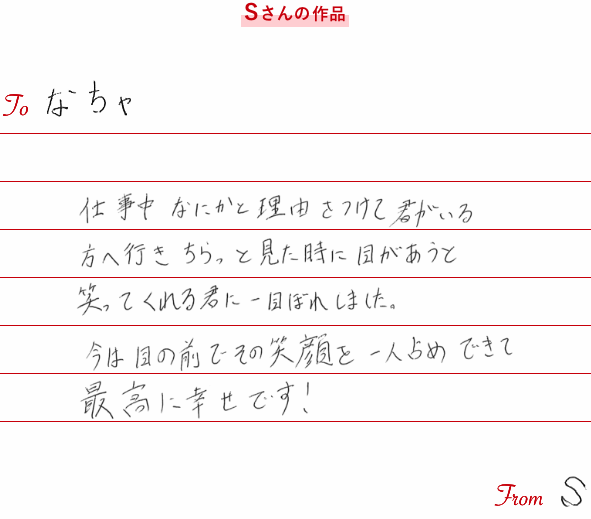 Sさんの作品
To なちゃ
仕事中 なにかと理由をつけて君がいる
方へ行き ちらっと見た時に目があうと
笑ってくれる君に一目ぼれしました。
今は目の前でその笑顔を一人占めできて
最高に幸せです！
From S